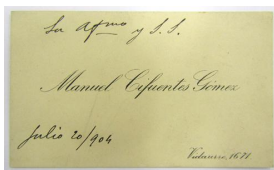 Su Afmo y S.S.
Manuel Cifuentes Gómez
Julio 20/904
Vidaurre, 1671